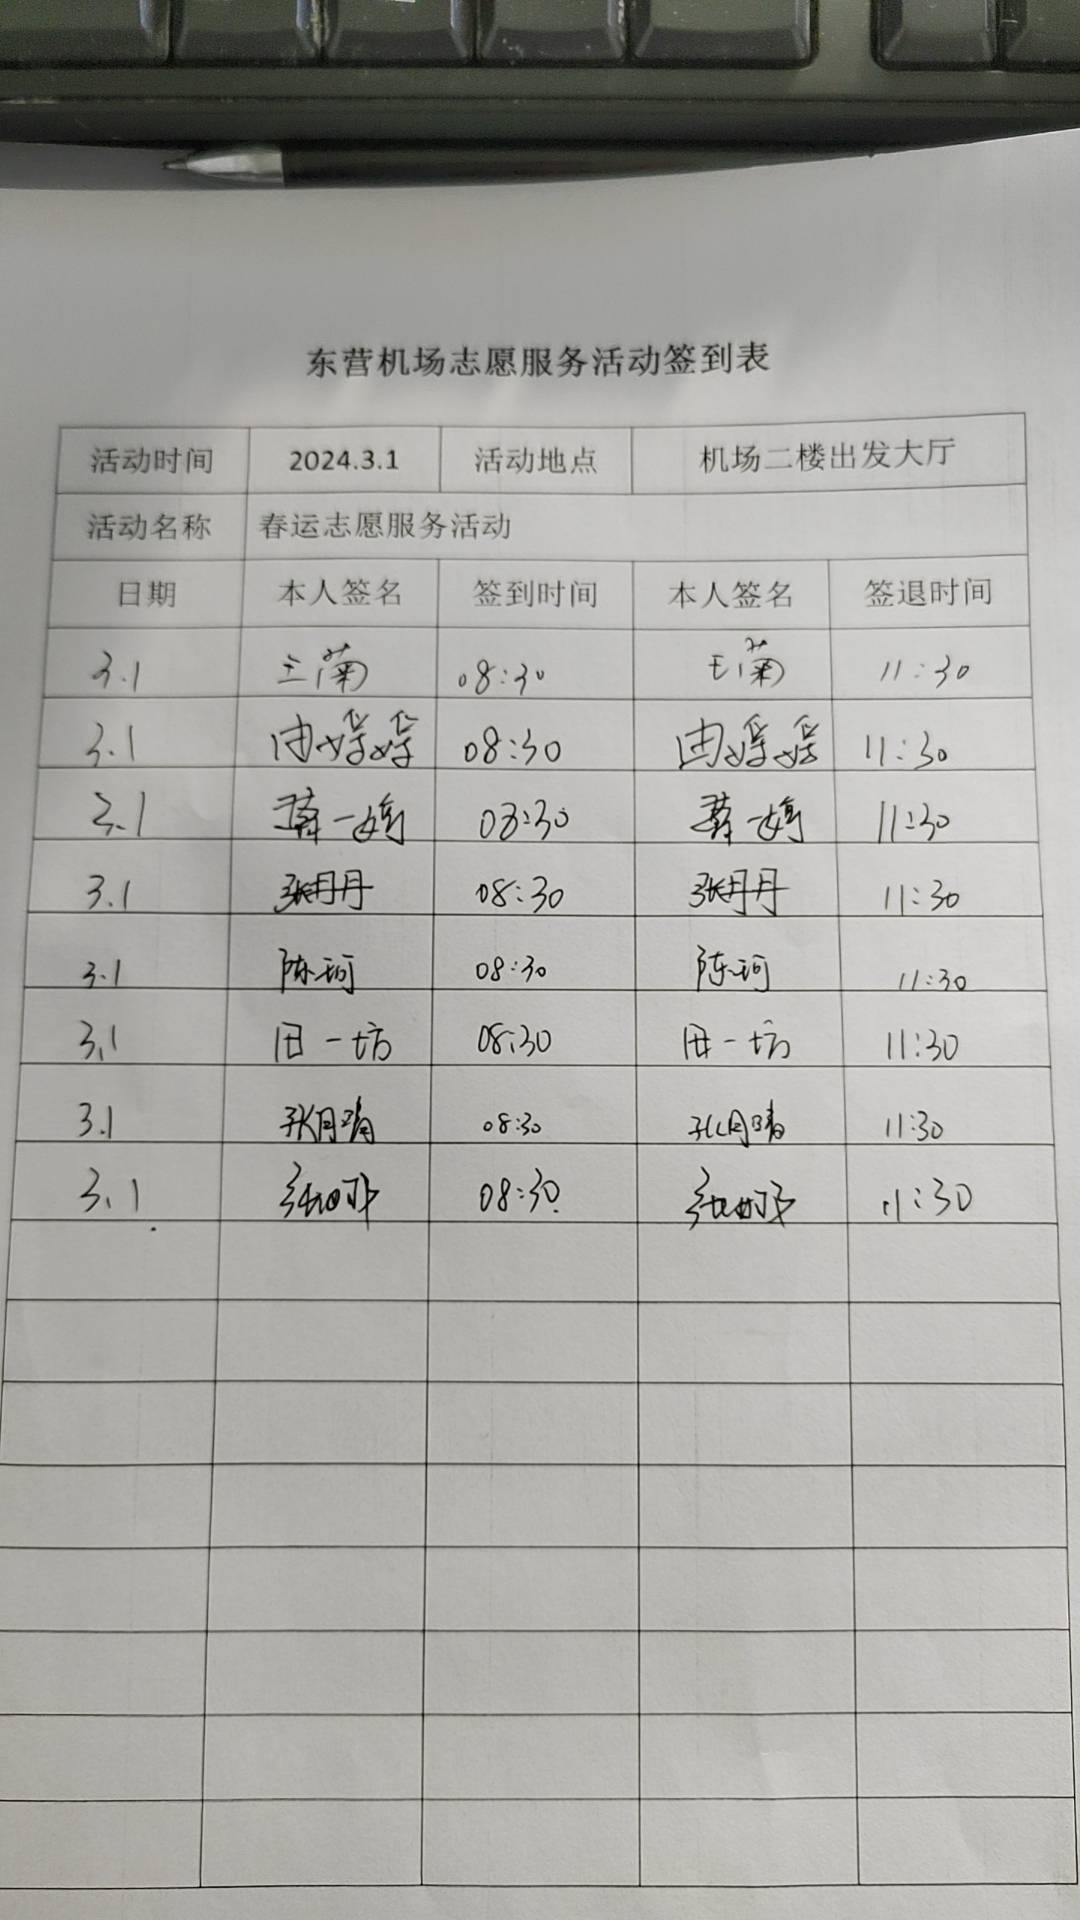 东营机场志愿服务活动签到表
活动时间 2024.3.1 活动地点 机场二楼出发大厅
活动名称 春运志愿服务活动
日期 本人签名 签到时间 本人签名 签退时间
3.1 08:30 11:30
3.1 由婷婷 08:30 由婷婷 11:30
3.1 08:30 11:30
3.1 张丹丹 08:30 张丹丹 11:30
3.1 陈珂 08:30 陈珂 11:30
3.1 田一坊 08:30 田一坊 11:30
3.1 张月晴 08:30 张月晴 11:30
3.1 08:30 11:30